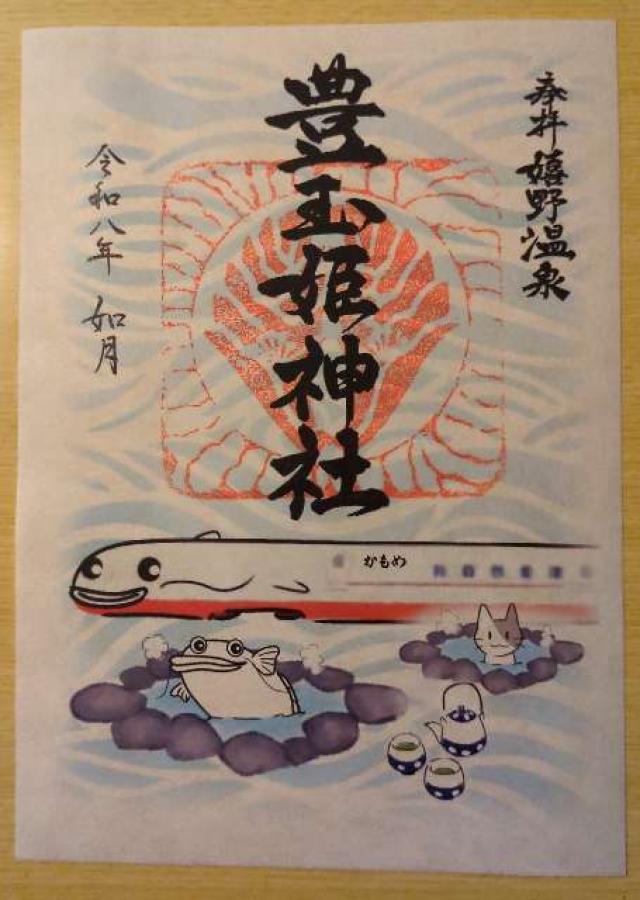 奉拝 嬉野温泉
豊玉姫神社
令和八年 如月
かもめ